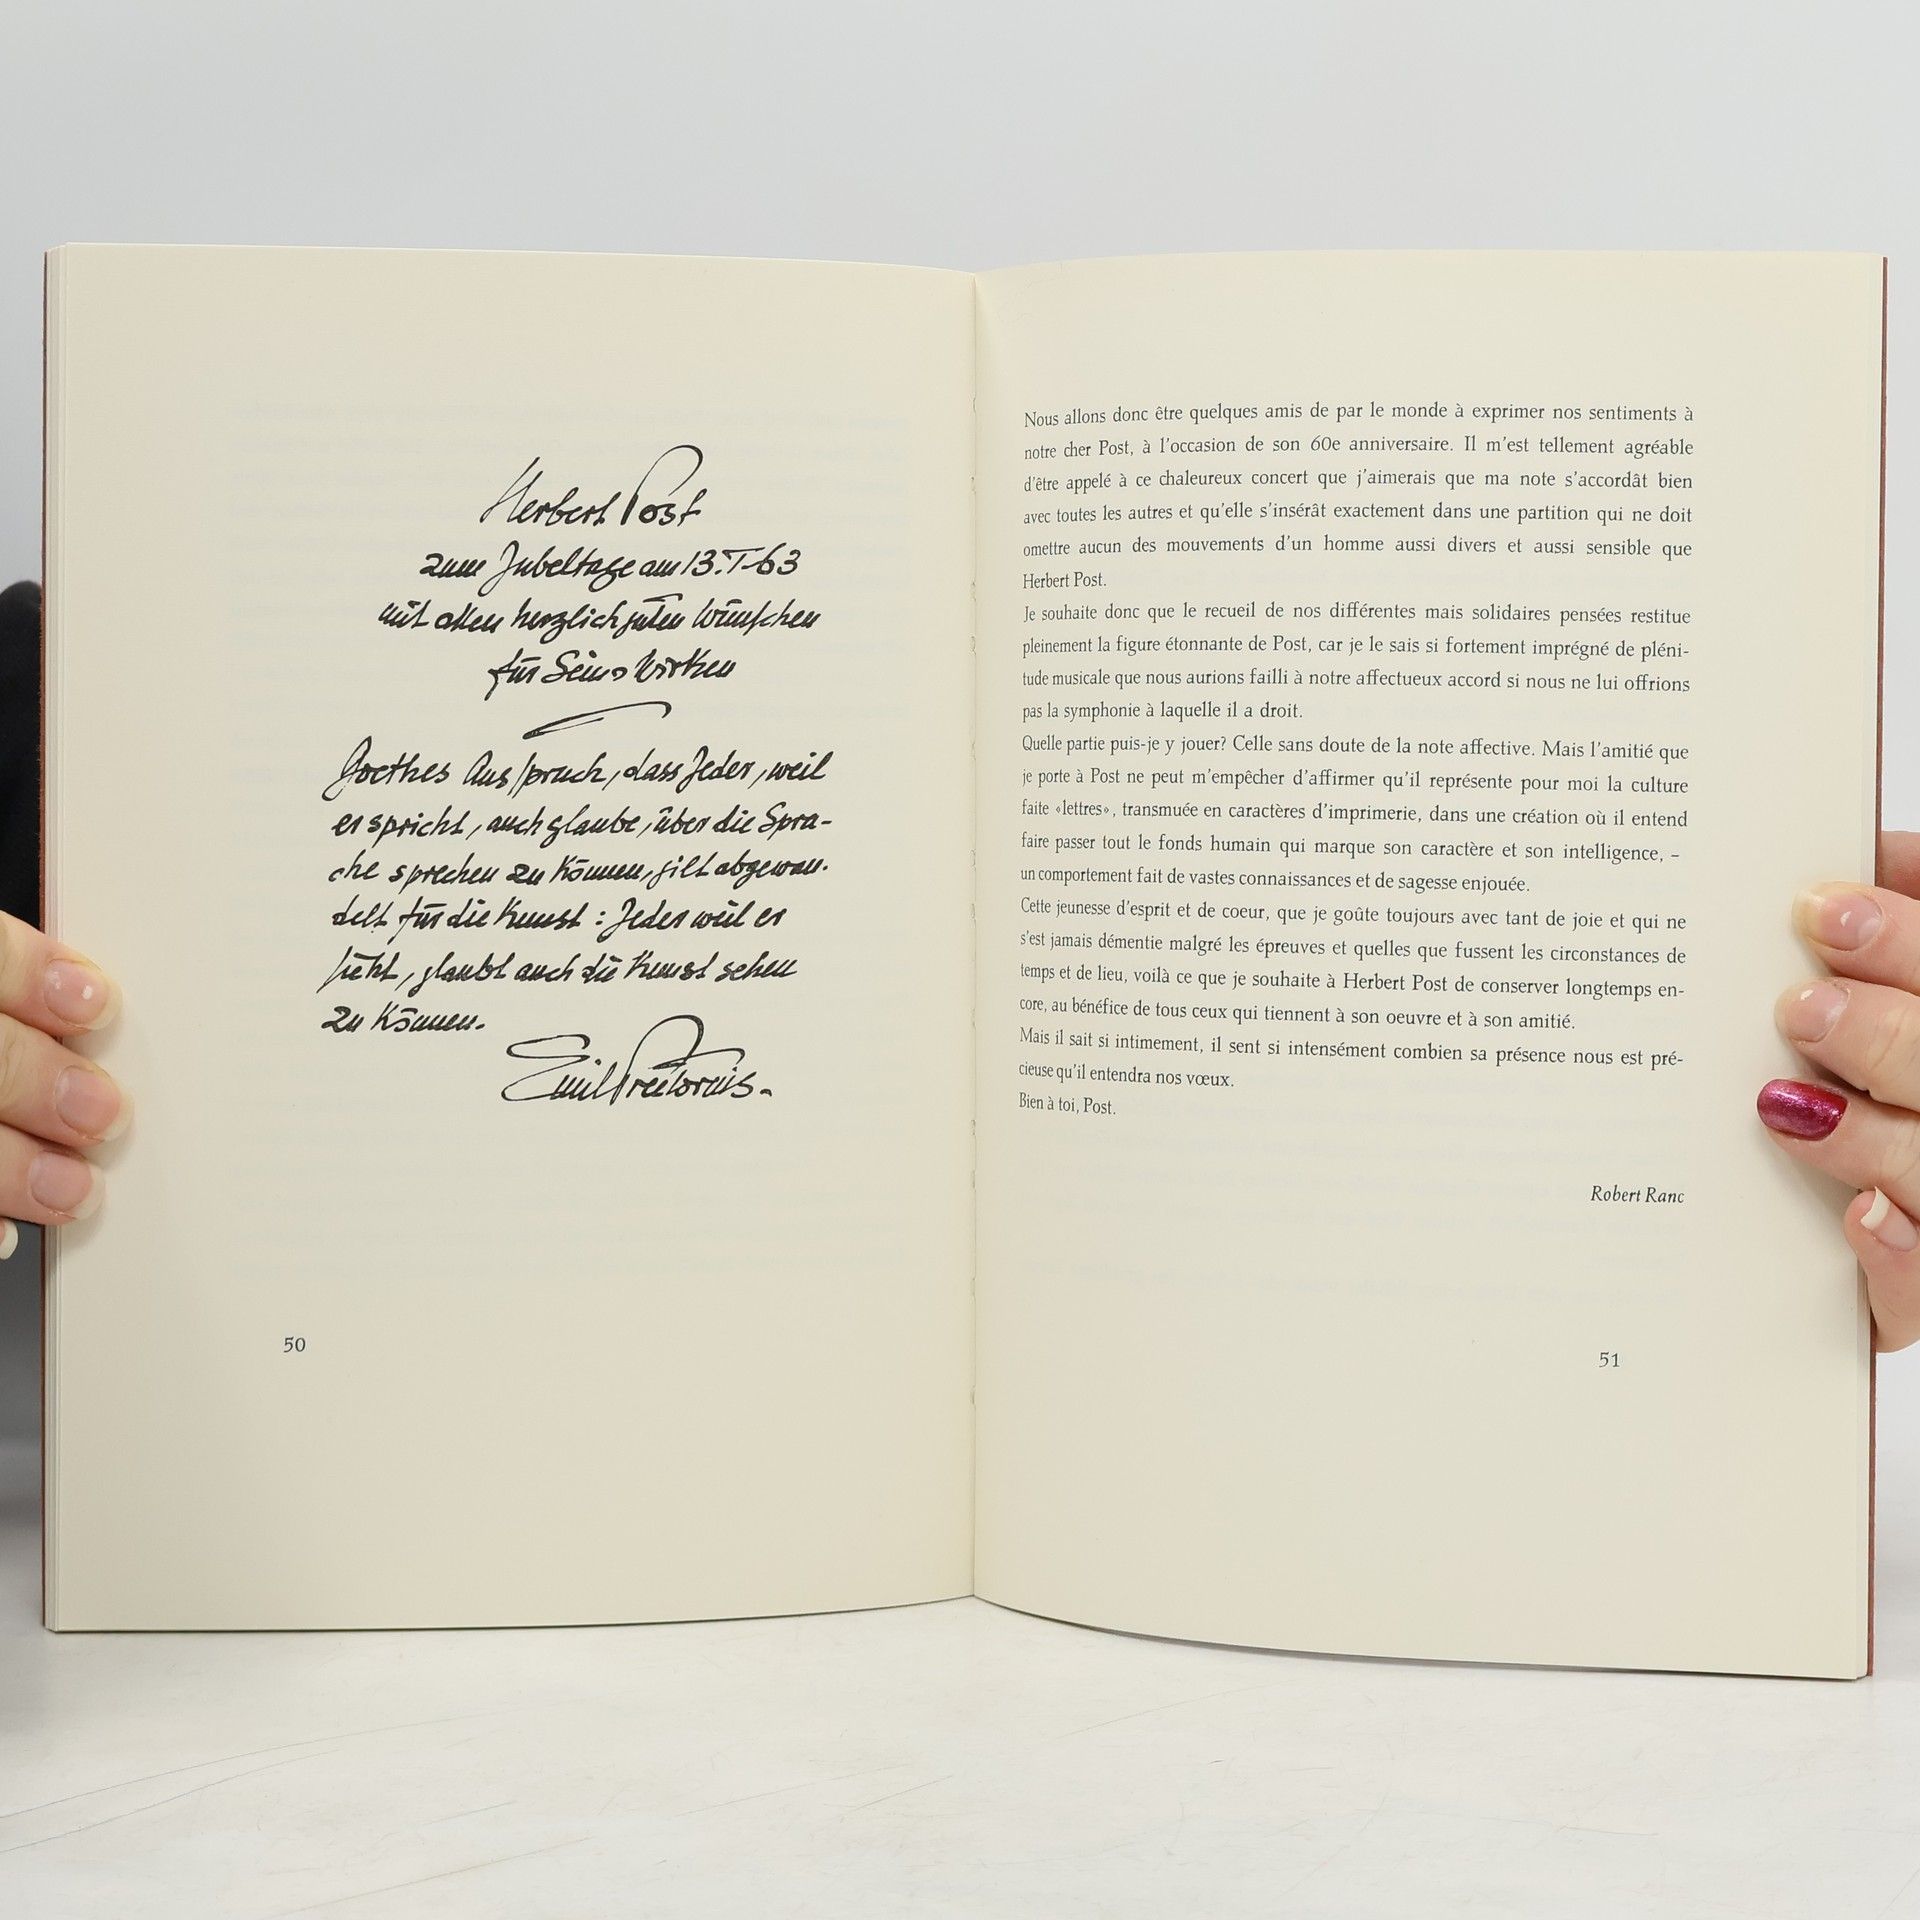 Herbert Post
zum Jubeltage am 13.I.63
mit allen herzlich guten Wünschen
für Sein Wirken
Goethes Ausspruch, dass Jeder, weil
er spricht, auch glaube, über die Spra-
che sprechen zu können, gilt abgewan-
delt für die Kunst: Jeder weil er
sieht, glaubt auch die Kunst sehen
zu können.
Emil Preetorius.
50
Nous allons donc être quelques amis de par le monde à exprimer nos sentiments à
notre cher Post, à l’occasion de son 60e anniversaire. Il m’est tellement agréable
d’être appelé à ce chaleureux concert que j’aimerais que ma note s’accordât bien
avec toutes les autres et qu’elle s’insérât exactement dans une partition qui ne doit
omettre aucun des mouvements d’un homme aussi divers et aussi sensible que
Herbert Post.
Je souhaite donc que le recueil de nos différentes mais solidaires pensées restitue
pleinement la figure étonnante de Post, car je le sais si fortement imprégné de pléni-
tude musicale que nous aurions failli à notre affectueux accord si nous ne lui offrions
pas la symphonie à laquelle il a droit.
Quelle partie puis-je y jouer? Celle sans doute de la note affective. Mais l’amitié que
je porte à Post ne peut m’empêcher d’affirmer qu’il représente pour moi la culture
faite «lettres», transmuée en caractères d’imprimerie, dans une création où il entend
faire passer tout le fonds humain qui marque son caractère et son intelligence, –
un comportement fait de vastes connaissances et de sagesse enjouée.
Cette jeunesse d’esprit et de coeur, que je goûte toujours avec tant de joie et qui ne
s’est jamais démentie malgré les épreuves et quelles que fussent les circonstances de
temps et de lieu, voilà ce que je souhaite à Herbert Post de conserver longtemps en-
core, au bénéfice de tous ceux qui tiennent à son oeuvre et à son amitié.
Mais il sait si intimement, il sent si intensément combien sa présence nous est pré-
cieuse qu’il entendra nos vœux.
Bien à toi, Post.
Robert Ranc
51